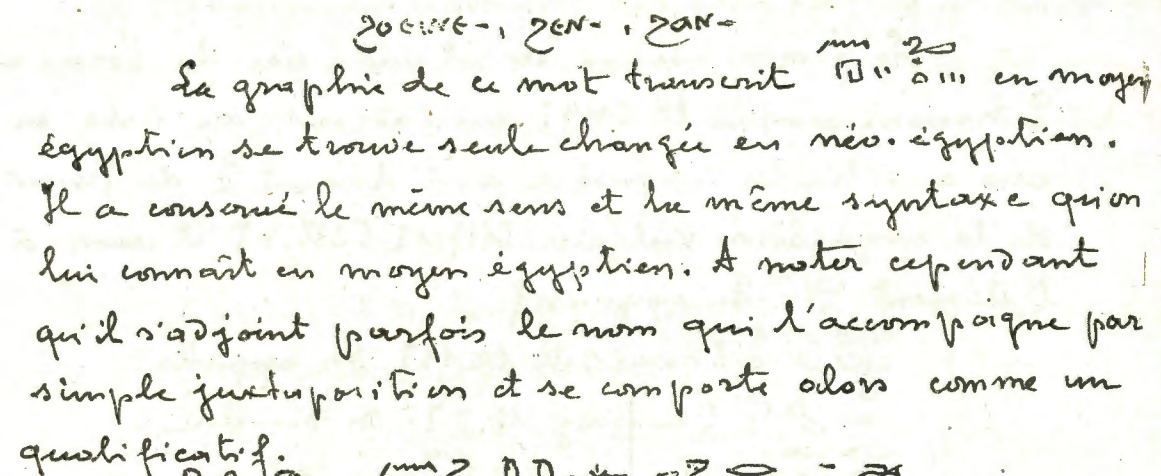 ϩⲟⲉⲓⲛⲉ-, ϩⲉⲛ-, ϩⲁⲛ-
La graphie de ce mot transcrit en moyen
égyptien se trouve seule changée en néo-égyptien.
Il a conservé le même sens et la même syntaxe qu'on
lui connaît en moyen égyptien. A noter cependant
qu'il s'adjoint parfois le nom qui l'accompagne par
simple juxtaposition et se comporte alors comme un
qualificatif.